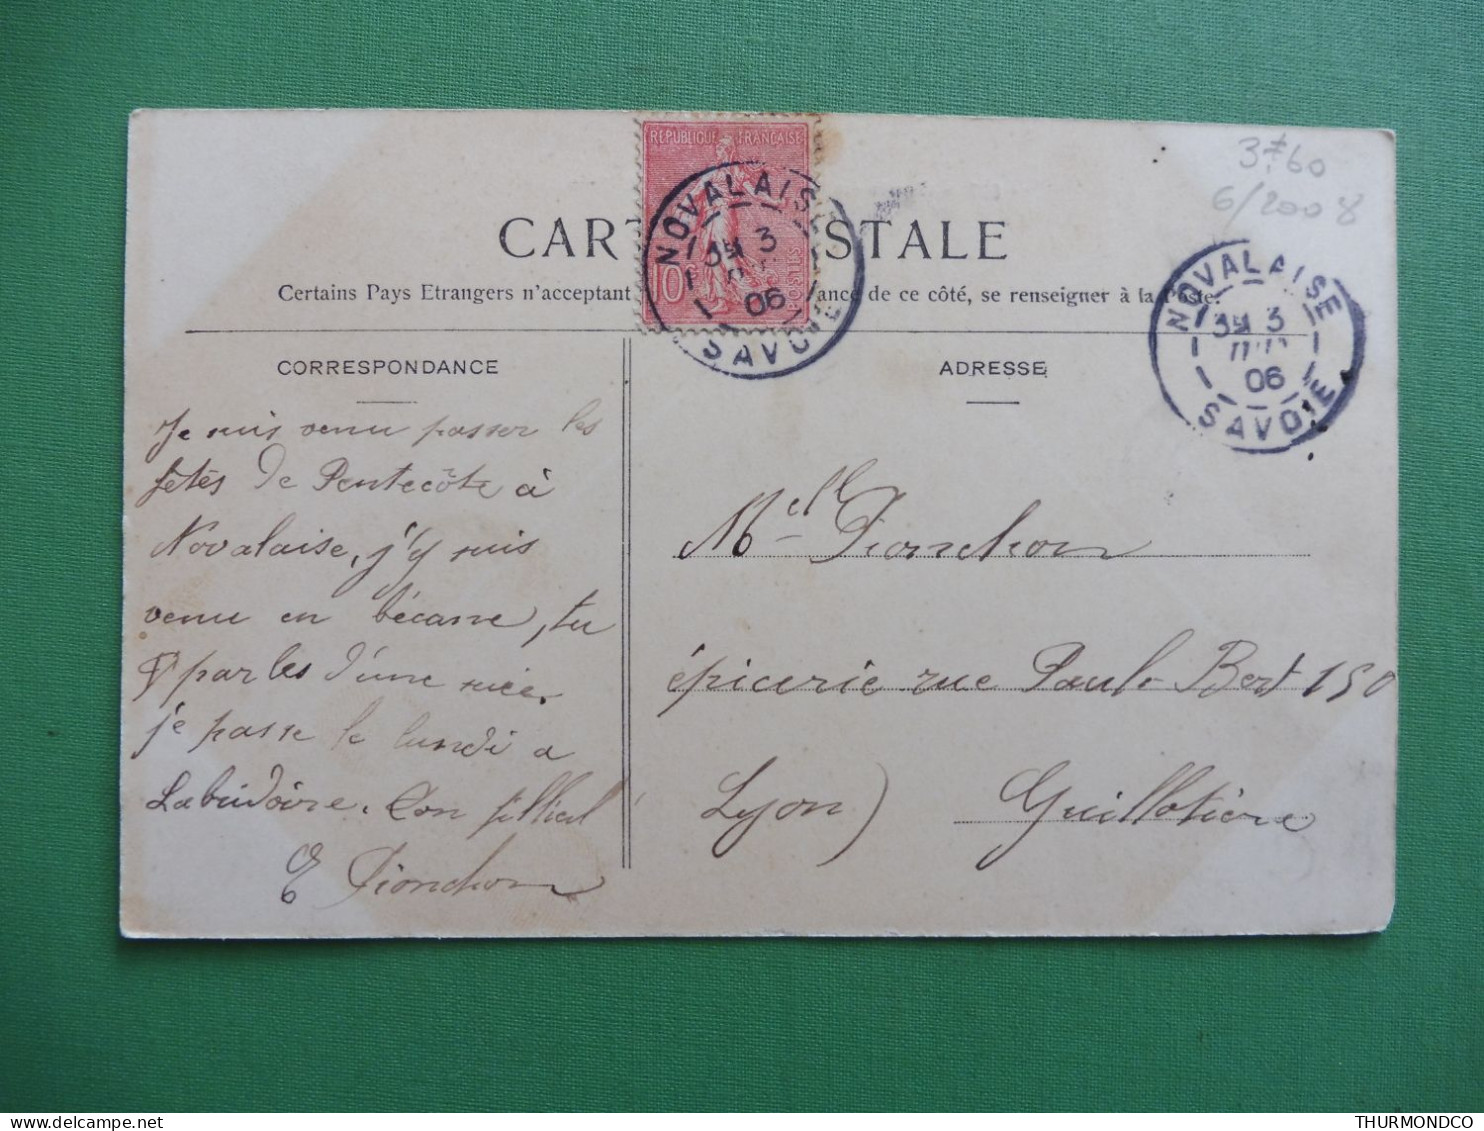 3.60
6/2008
RÉPUBLIQUE FRANÇAISE
10c
POSTES
NOVALAISE
3
06
SAVOIE
NOVALAISE
3
JUIN
06
SAVOIE
CAR STALE
Certains Pays Etrangers n'acceptant ance de ce côté, se renseigner à la Poste.
CORRESPONDANCE
ADRESSE
Je suis venu passer les
fêtes de Pentecôte à
Novalaise, j'y suis
venu en bécane, tu
parles d'une
je passe le lundi a
Labridoire. Ton
E Pionchon
Melle Pionchon
épicerie rue Paul-Bert 150
Lyon) Guillotière
THURMONDCO